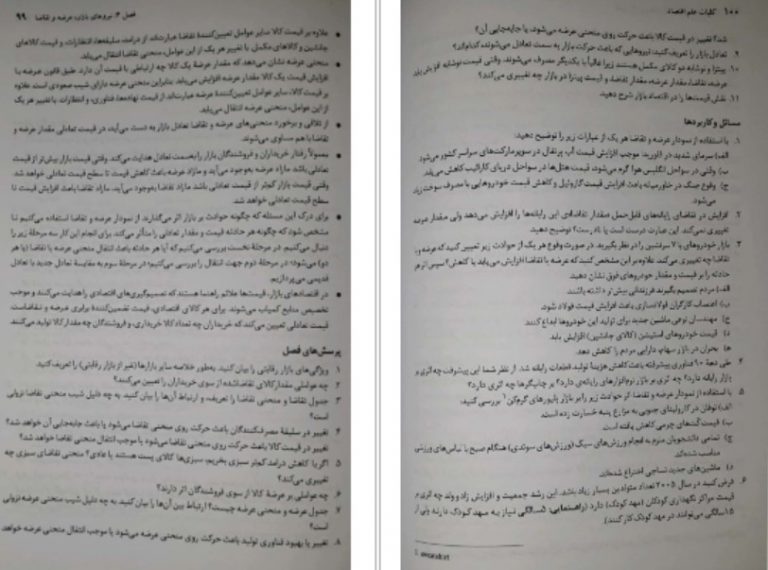 فصل ۴: نیروهای بازار، عرضه و تقاضا    ۹۹
علاوه بر قیمت کالا سایر عوامل تعیین‌کنندهٔ تقاضا عبارت‌اند از: درآمد، سلیقه‌ها، انتظارات، و قیمت‌های
جانشین و کالاهای مکمل. با تغییر هر یک از این عوامل، منحنی تقاضا انتقال می‌یابد.
منحنی عرضه نشان می‌دهد که مقدار عرضهٔ یک کالا چه ارتباطی با قیمت آن دارد. طبق قانون عرضه با
افزایش قیمت یک کالا مقدار عرضه افزایش می‌یابد. بنابراین منحنی عرضه دارای شیب صعودی است. علاوه
بر قیمت کالا، سایر عوامل تعیین‌کنندهٔ عرضه عبارت‌اند از قیمت نهاده‌ها، فناوری، و انتظارات. با تغییر هر یک
از این عوامل، منحنی عرضه انتقال می‌یابد.
از تلاقی و برخورد منحنی‌های عرضه و تقاضا تعادل بازار به دست می‌آید. در قیمت تعادلی مقدار عرضه و
تقاضا با هم مساوی می‌شوند.
معمولاً رفتار خریداران و فروشندگان بازار را به‌سمت تعادل هدایت می‌کند. وقتی قیمت بازار بیش‌تر از قیمت
تعادلی باشد مازاد عرضه به‌وجود می‌آید و مازاد عرضه باعث کاهش قیمت تا سطح قیمت تعادلی خواهد شد.
وقتی قیمت بازار کم‌تر از قیمت تعادلی باشد مازاد تقاضا به‌وجود می‌آید. مازاد تقاضا باعث افزایش قیمت تا
سطح قیمت تعادلی خواهد شد.
برای درک این مسئله که چگونه حوادث بر بازار اثر می‌گذارند، از نمودار عرضه و تقاضا استفاده می‌کنیم تا
مشخص شود که چگونه هر حادثه قیمت و مقدار تعادلی را متأثر می‌کند. برای انجام این کار سه مرحلهٔ زیر را
دنبال می‌کنیم. در مرحلهٔ نخست بررسی می‌کنیم که آیا هر حادثه باعث انتقال منحنی عرضه یا تقاضا (یا هر
دو) می‌شود؛ در مرحلهٔ دوم جهت انتقال را بررسی می‌کنیم؛ در مرحلهٔ سوم به مقایسهٔ تعادل جدید با تعادل
قدیمی می‌پردازیم.
در اقتصادهای بازار، قیمت‌ها علائم راهنما هستند که تصمیم‌گیری‌های اقتصادی را هدایت می‌کنند و موجب
تخصیص منابع کمیاب می‌شوند. برای هر کالای اقتصادی، قیمت تضمین‌کنندهٔ برابری عرضه و تقاضاست.
قیمت تعادلی تعیین می‌کند که خریداران چه تعداد کالا خریداری، و فروشندگان چه مقدار کالا تولید می‌کنند.
پرسش‌های فصل
۱. ویژگی‌های بازار رقابتی را بیان کنید. به‌طور خلاصه سایر بازارها (غیر از بازار رقابتی) را تعریف کنید.
۲. چه عواملی مقدار کالای تقاضاشده از سوی خریداران را تعیین می‌کنند؟
۳. جدول تقاضا و منحنی تقاضا را تعریف، و ارتباط آن‌ها را بیان کنید. به چه دلیل شیب منحنی تقاضا نزولی
است؟
۴. تغییر در سلیقهٔ مصرف‌کنندگان باعث حرکت روی منحنی تقاضا می‌شود یا باعث جابه‌جایی آن خواهد شد؟
تغییر در قیمت کالا باعث حرکت روی منحنی تقاضا می‌شود یا موجب انتقال منحنی تقاضا خواهد شد؟
۵. اگر با کاهش درآمد کم‌تر سبزی بخریم، سبزی‌ها کالای پست هستند یا عادی؟ منحنی تقاضای سبزی چه
تغییری می‌کند؟
۶. چه عواملی بر عرضهٔ کالا از سوی فروشندگان اثر دارند؟
۷. جدول عرضه و منحنی عرضه چیست؟ ارتباط بین آن‌ها را بیان کنید. به چه دلیل شیب منحنی عرضه نزولی
است؟
۸. تغییر یا بهبود فناوری تولید باعث حرکت روی منحنی عرضه می‌شود یا موجب انتقال منحنی عرضه خواهد
۱۰۰    کلیات علم اقتصاد
شد؟ تغییر در قیمت کالا باعث حرکت روی منحنی عرضه می‌شود، یا جابه‌جایی آن؟
۹. تعادل بازار را تعریف کنید. نیروهایی که باعث حرکت بازار به سمت تعادل می‌شوند کدام‌اند؟
۱۰. پیتزا و نوشابه دو کالای مکمل هستند زیرا غالباً با یکدیگر مصرف می‌شوند. وقتی قیمت نوشابه افزایش یابد
عرضه، تقاضا، مقدار عرضه، مقدار تقاضا، و قیمت پیتزا در بازار چه تغییری می‌کند؟
۱۱. نقش قیمت‌ها را در اقتصاد بازار شرح دهید.
مسائل و کاربردها
۱. با استفاده از نمودار عرضه و تقاضا هر یک از عبارات زیر را توضیح دهید:
الف) سرمای شدید در فلوریدا، موجب افزایش قیمت آب پرتقال در سوپرمارکت‌های سراسر کشور می‌شود.
ب) وقتی در سواحل انگلیس هوا گرم می‌شود، قیمت هتل‌ها در سواحل دریای کارائیب کاهش می‌یابد.
ج) وقوع جنگ در خاورمیانه باعث افزایش قیمت گازوئیل و کاهش قیمت خودروهایی با مصرف سوخت زیاد
می‌شود.
۲. افزایش در تقاضای رایانه‌های قابل‌حمل «مقدار تقاضا»ی این رایانه‌ها را افزایش می‌دهد ولی مقدار عرضه
تغییری نمی‌کند. این عبارت درست است یا نادرست؟ توضیح دهید.
۳. بازار خودروهای با ۷ سرنشین را در نظر بگیرید. در صورت وقوع هر یک از حوادث زیر تعیین کنید که عرضه و
تقاضا چه تغییری می‌کند. علاوه بر این مشخص کنید که عرضه یا تقاضا افزایش می‌یابد یا کاهش؟ سپس اثر هر
حادثه را بر قیمت و مقدار خودروهای فوق نشان دهید.
الف) مردم تصمیم بگیرند فرزندانی بیش‌تر داشته باشند.
ب) اعتصاب کارگران فولادسازی باعث افزایش قیمت فولاد شود.
ج) مهندسان نوعی ماشین جدید برای تولید این خودروها ابداع کنند.
د) قیمت خودروهای استیشن (کالای جانشین) افزایش یابد.
ه) بحران در بازار سهام، دارایی مردم را کاهش دهد.
۴. طی دههٔ ۹۰ فناوری پیشرفته باعث کاهش هزینهٔ تولید، قطعات رایانه شد. از نظر شما این پیشرفت چه اثری بر
بازار رایانه دارد؟ چه اثری بر بازار نرم‌افزارهای رایانه‌ای دارد؟ بر چاپگرها چه اثری دارد؟
۵. با استفاده از نمودار عرضه و تقاضا اثر حوادث زیر را بر بازار پلیورهای گرم‌کن بررسی کنید:
الف) توفان در کارولینای جنوبی به مزارع پنبه خسارت زده است.
ب) قیمت کت‌های چرمی کاهش یافته است.
ج) تمامی دانشجویان ملزم به انجام ورزش‌های سبک (ورزش‌های سوئدی) هنگام صبح با لباس‌های ورزشی
مناسب شده‌اند.
د) ماشین‌های جدید نساجی اختراع شده‌اند.
۶. فرض کنید در سال ۲۰۰۵ تعداد متولدین بسیار زیاد باشد. این رشد جمعیت و افزایش زاد و ولد چه اثری بر
قیمت مراکز نگهداری کودکان (مهد کودک) دارد؟ (راهنمایی: ۵ سالگی نیاز به مهد کودک دارند ولی از
۱۵ سالگی می‌توانند در مهد کودک کار کنند).
1. sweatshirt